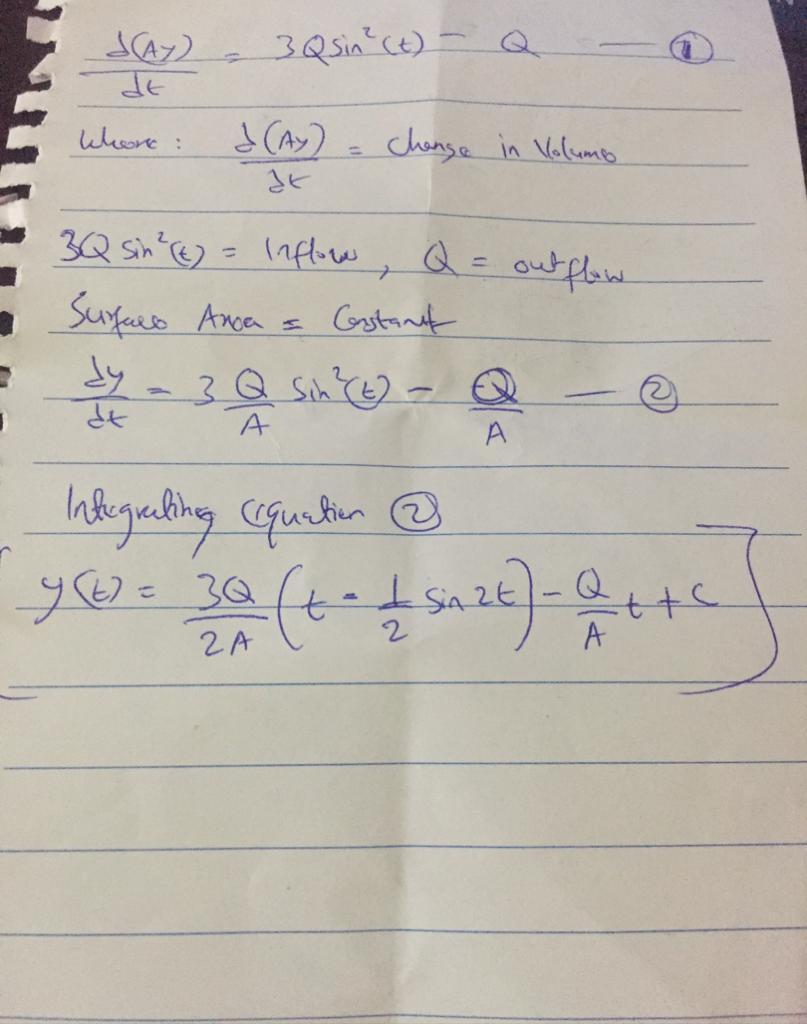 d(Ay)/dt = 3Q sin²(t) - Q — ①
Where: d(Ay)/dt = Change in Volume
3Q sin²(t) = Inflow, Q = outflow
Surface Area = Constant
dy/dt = 3 Q/A Sin²(t) - Q/A — ②
Integrating equation ②
y(t) = 3Q/2A (t - 1/2 Sin 2t) - Q/A t + C